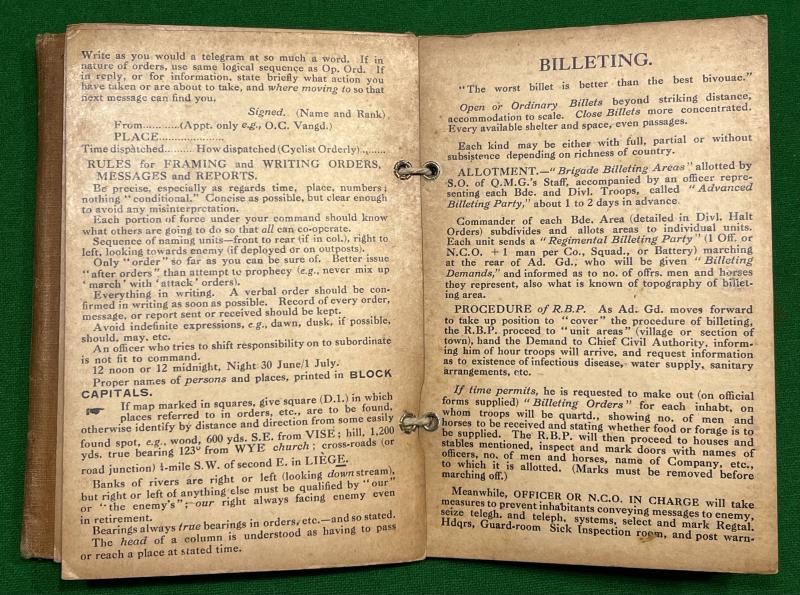 Write as you would a telegram at so much a word. If in
nature of orders, use same logical sequence as Op. Ord. If
in reply, or for information, state briefly what action you
have taken or are about to take, and where moving to so that
next message can find you.
Signed. (Name and Rank)
From............(Appt. only e.g., O.C. Vangd.)
PLACE........................
Time dispatched.......... How dispatched (Cyclist Orderly).......
RULES for FRAMING and WRITING ORDERS,
MESSAGES and REPORTS.
Be precise, especially as regards time, place, numbers;
nothing "conditional." Concise as possible, but clear enough
to avoid any misinterpretation.
Each portion of force under your command should know
what others are going to do so that all can co-operate.
Sequence of naming units—front to rear (if in col.), right to
left, looking towards enemy (if deployed or on outposts).
Only "order" so far as you can be sure of. Better issue
"after orders" than attempt to prophecy (e.g., never mix up
'march' with 'attack' orders).
Everything in writing. A verbal order should be con-
firmed in writing as soon as possible. Record of every order,
message, or report sent or received should be kept.
Avoid indefinite expressions, e.g., dawn, dusk, if possible,
should, may, etc.
An officer who tries to shift responsibility on to subordinate
is not fit to command.
12 noon or 12 midnight, Night 30 June/1 July.
Proper names of persons and places, printed in BLOCK
CAPITALS.
☛ If map marked in squares, give square (D.1.) in which
places referred to in orders, etc., are to be found,
otherwise identify by distance and direction from some easily
found spot, e.g., wood, 600 yds. S.E. from VISE; hill, 1,200
yds. true bearing 123° from WYE church; cross-roads (or
road junction) ¼-mile S.W. of second E. in LIÈGE.
Banks of rivers are right or left (looking down stream),
but right or left of anything else must be qualified by "our"
or "the enemy's"; our right always facing enemy even
in retirement.
Bearings always true bearings in orders, etc.—and so stated.
The head of a column is understood as having to pass
or reach a place at stated time.
BILLETING.
"The worst billet is better than the best bivouac."
Open or Ordinary Billets beyond striking distance,
accommodation to scale. Close Billets more concentrated.
Every available shelter and space, even passages.
Each kind may be either with full, partial or without
subsistence depending on richness of country.
ALLOTMENT.—"Brigade Billeting Areas" allotted by
S.O. of Q.M.G.'s Staff, accompanied by an officer repre-
senting each Bde. and Divl. Troops, called "Advanced
Billeting Party," about 1 to 2 days in advance.
Commander of each Bde. Area (detailed in Divl. Halt
Orders) subdivides and allots areas to individual units.
Each unit sends a "Regimental Billeting Party" (1 Off. or
N.C.O. + 1 man per Co., Squad., or Battery) marching
at the rear of Ad. Gd., who will be given "Billeting
Demands," and informed as to no. of offrs. men and horses
they represent, also what is known of topography of billet-
ing area.
PROCEDURE of R.B.P. As Ad. Gd. moves forward
to take up position to "cover" the procedure of billeting,
the R.B.P. proceed to "unit areas" (village or section of
town), hand the Demand to Chief Civil Authority, inform-
ing him of hour troops will arrive, and request information
as to existence of infectious disease, water supply, sanitary
arrangements, etc.
If time permits, he is requested to make out (on official
forms supplied) "Billeting Orders" for each inhabt, on
whom troops will be quartd., showing no. of men and
horses to be received and stating whether food or forage is to
be supplied. The R.B.P. will then proceed to houses and
stables mentioned, inspect and mark doors with names of
officers, no. of men and horses, name of Company, etc.,
to which it is allotted. (Marks must be removed before
marching off.)
Meanwhile, OFFICER OR N.C.O. IN CHARGE will take
measures to prevent inhabitants conveying messages to enemy,
seize telegh. and teleph. systems, select and mark Regtal.
Hdqrs, Guard-room Sick Inspection room, and post warn-